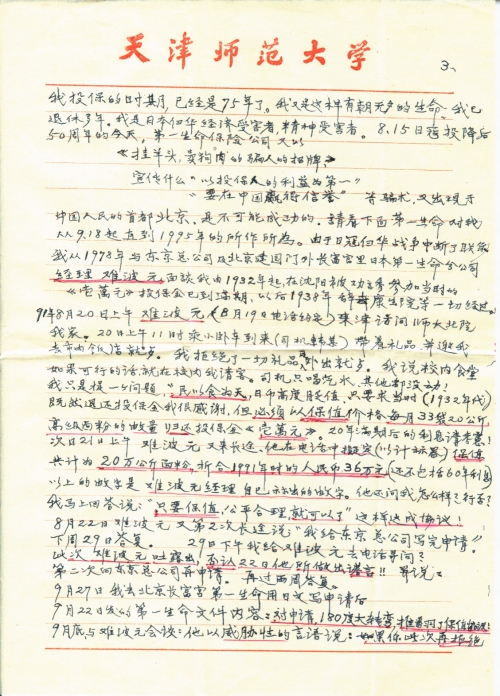 天津师范大学
3、
我投保的时期，已经是75年了。我又是这样有朝无夕的生命，我已
退休多年。我是日本侵华经济受害者，精神受害者。8.15日寇投降后
50周年的今天，第一生命保险公司又以
《挂羊头，卖狗肉的骗人的招牌》
宣传什么"以投保人的利益为第一"
"要在中国赢得信誉" 等骗术，又出现于
中国人民的首都北京，是不可能成功的，请看下面第一生命对我
从9.18起直到1995年的所作所为。由于日寇侵华战争中断了联系
我从1978年与东京总公司及北京建国门外长富宫里日本第一生命分公司
经理 难波元面谈我由1932年起，在沈阳被劝诱参加当时的
《壹萬元》投保金已到满期，以后1938年 康出院等一切经过。
91年8月20日上午 难波元（8月19日电话约定）来津访问师大北院
我家。20日上午11时乘小卧车到来（司机韩某）带着礼品并邀我
去市内饭店就点。我拒绝了一切礼品及外出就点。我说校内食堂
如果可行的话就在校内我请客。司机只喝汽水，其他都没动！
我只提一个问题，"民以食为天，日币高度贬值，只要求当时（1932年代）
既然退还投保金我很感谢，但必须以保值价格每月33袋20公斤
高级面粉的数量归还投保金《壹萬元》。20年满期后的利息请考虑！
次日21日上午 难波元又来长途，他在电话中拟定（以计标器）保值
共计为20万公斤面粉，折合1991年时的人民币36万元（还不包括60年利息）
以上的数字是 难波元经理自己标出的数字。他还问我，怎么样？行否？
我马上回答说："只要保值，公平合理，就可以了"这样达成协议！
8月22日难波元又第2次长途说："我给东京总公司写完申请"。
下周29日答复。 29日下午我给又难波元去电话寻问？
此次 难波元吐露出，否认22日他所做出诺言！！ 尋说：
第二次向东京总公司再申请。再过两周答复。
9月27日我去北京长富宫第一生命用日文写申请后
9月22日发的第一生命文件内容：对申请，180度大转变，推翻了保值的许诺！
9月底与难波元会谈：他以威胁性的言语说：如果你此次再拒绝